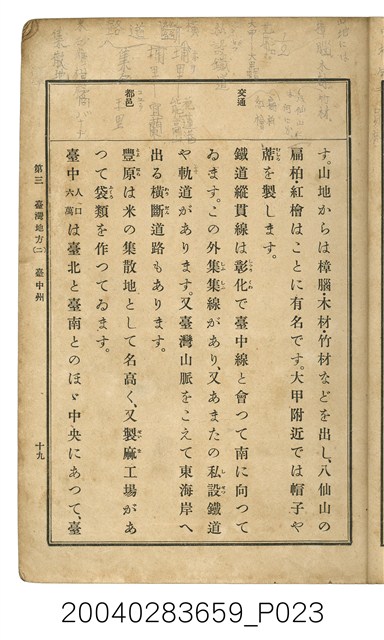 す。山地からは樟腦・木材・竹材などを出し、八仙山の
扁柏紅檜はことに有名です。大甲附近では帽子や
蓆を製します。
交通
鐵道縱貫線は彰化で臺中線と會つて南に向つて
ゐます。この外集集線があり、又あまたの私設鐵道
や軌道があります。又臺灣山脈をこえて東海岸へ
出る橫斷道路もあります。
都邑
豐原は米の集散地として名高く、又製麻工場があ
つて袋類を作つてゐます。
臺中人口六萬は臺北と臺南とのほゞ中央にあつて、臺
第三 臺灣地方(二) 臺中州
十九
20040283659_P023